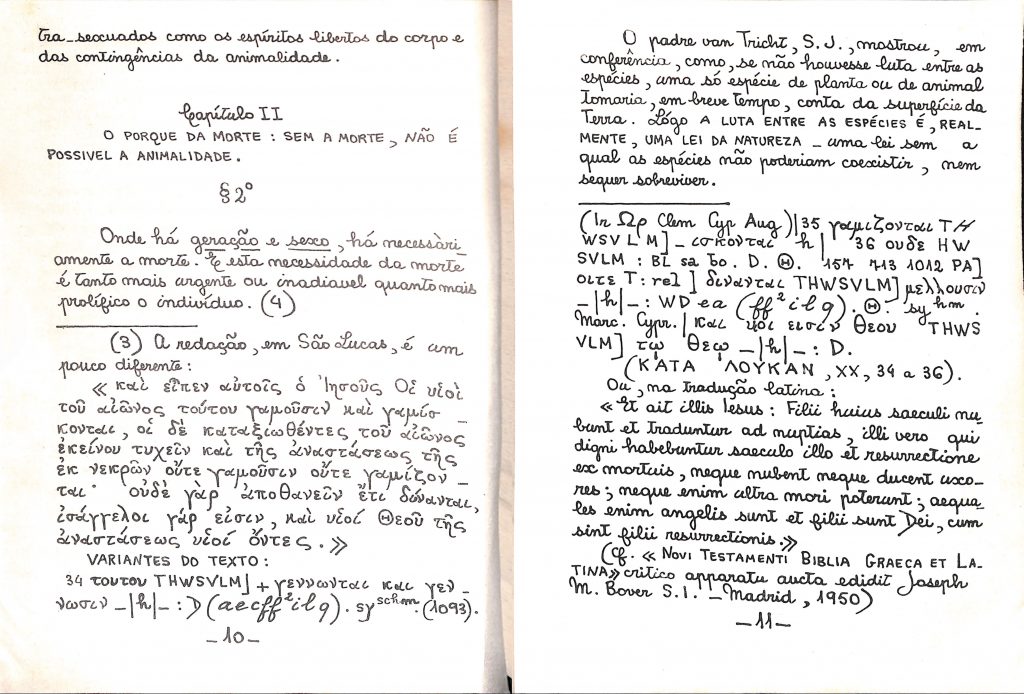 tra_sexuados como os espíritos libertos do corpo e
das contingências da animalidade.
Capítulo II
O PORQUE DA MORTE : SEM A MORTE, NÃO É
POSSIVEL A ANIMALIDADE.
§ 2º
Onde há geração e sexo, há necessàri_
amente a morte. E esta necessidade da morte
é tanto mais urgente ou inadiavel quanto mais
prolífico o indivíduo. (4)
(3) A redação, em São Lucas, é um
pouco diferente:
« καὶ εἶπεν αὐτοῖς ὁ Ἰησοῦς Οἱ υἱοὶ
τοῦ αἰῶνος τούτου γαμοῦσιν καὶ γαμίσ_
κονται, οἱ δὲ καταξιωθέντες τοῦ αἰῶνος
ἐκείνου τυχεῖν καὶ τῆς ἀναστάσεως τῆς
ἐκ νεκρῶν οὔτε γαμοῦσιν οὔτε γαμίζον_
ται· οὐδὲ γὰρ ἀποθανεῖν ἔτι δύνανται,
ἰσάγγελοι γάρ εἰσιν, καὶ υἱοί Θεοῦ τῆς
ἀναστάσεως υἱοί ὄντες. »
VARIANTES DO TEXTO:
34 τουτου THWSVLM] + γεννωνται και γεν_
νωσιν _|h|_ : D (aecff²ilq). sy schm. (1093).
_10_
O padre van Tricht, S.J., mostrou, em
conferência, como, se não houvesse luta entre as
espécies, uma só espécie de planta ou de animal
tomaria, em breve tempo, conta da superfície da
Terra. Lógo A LUTA ENTRE AS ESPÉCIES É, REAL_
MENTE, UMA LEI DA NATUREZA _ uma lei sem a
qual as espécies não poderiam coexistir, nem
sequer sobreviver.
(Ir Ωρ Clem Cyp Aug)| 35 γαμιζονται TH
WSVLM] _ ισκονται |h| 36 ουδε HW
SVLM : Bl sa bo. D. Θ. 157 713 1012 PA]
οιτε T: rel ] δυνανται THWSVLM] μελλουσιν
_|h|_ : WD ea (ff²ilq). Θ. sy hm.
Marc. Cypr. | και υιοι εισιν θεου THWS
VLM] τῳ θεῳ _|h|_ : D.
(ΚΑΤΑ ΛΟΥΚΑΝ, XX, 34 a 36).
Ou, na tradução latina:
« Et ait illis Iesus : Filii huius saeculi nu
bunt et traduntur ad nuptias, illi vero qui
digni habebuntur saeculo illo et resurrectione
ex mortuis, neque nubent neque ducent uxo_
res; neque enim ultra mori poterunt; aequa_
les enim angelis sunt et filii sunt Dei, cum
sint filii resurrectionis.»
(Cf. « NOVI TESTAMENTI BIBLIA GRAECA ET LA_
TINA» critico apparatu aucta edidit Joseph
M. Bover S.I. _ Madrid, 1950)
_11_